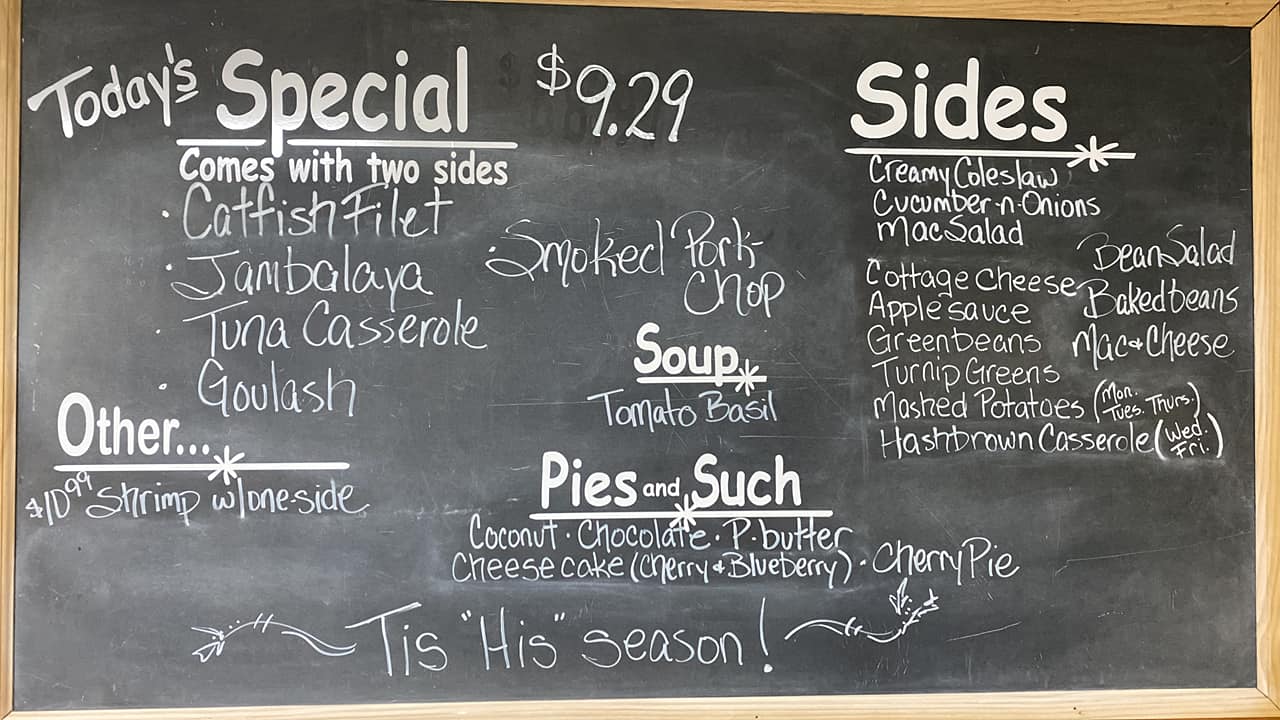 Today's Special $9.29
Comes with two sides
· Catfish Filet
· Jambalaya
· Tuna Casserole
· Goulash
· Smoked Pork
Chop
Soup
Tomato Basil
Other...
$10 99 Shrimp w/one-side
Pies and Such
Coconut · Chocolate · P·butter
Cheesecake (Cherry & Blueberry) · Cherry Pie
Sides
Creamy Coleslaw
Cucumber-n-Onions
Mac Salad
Cottage Cheese
Applesauce
Greenbeans
Turnip Greens
Mashed Potatoes (Mon.
Tues. Thurs.)
Hashbrown Casserole (Wed.
Fri.)
Bean Salad
Baked beans
Mac & Cheese
Tis "His" season!